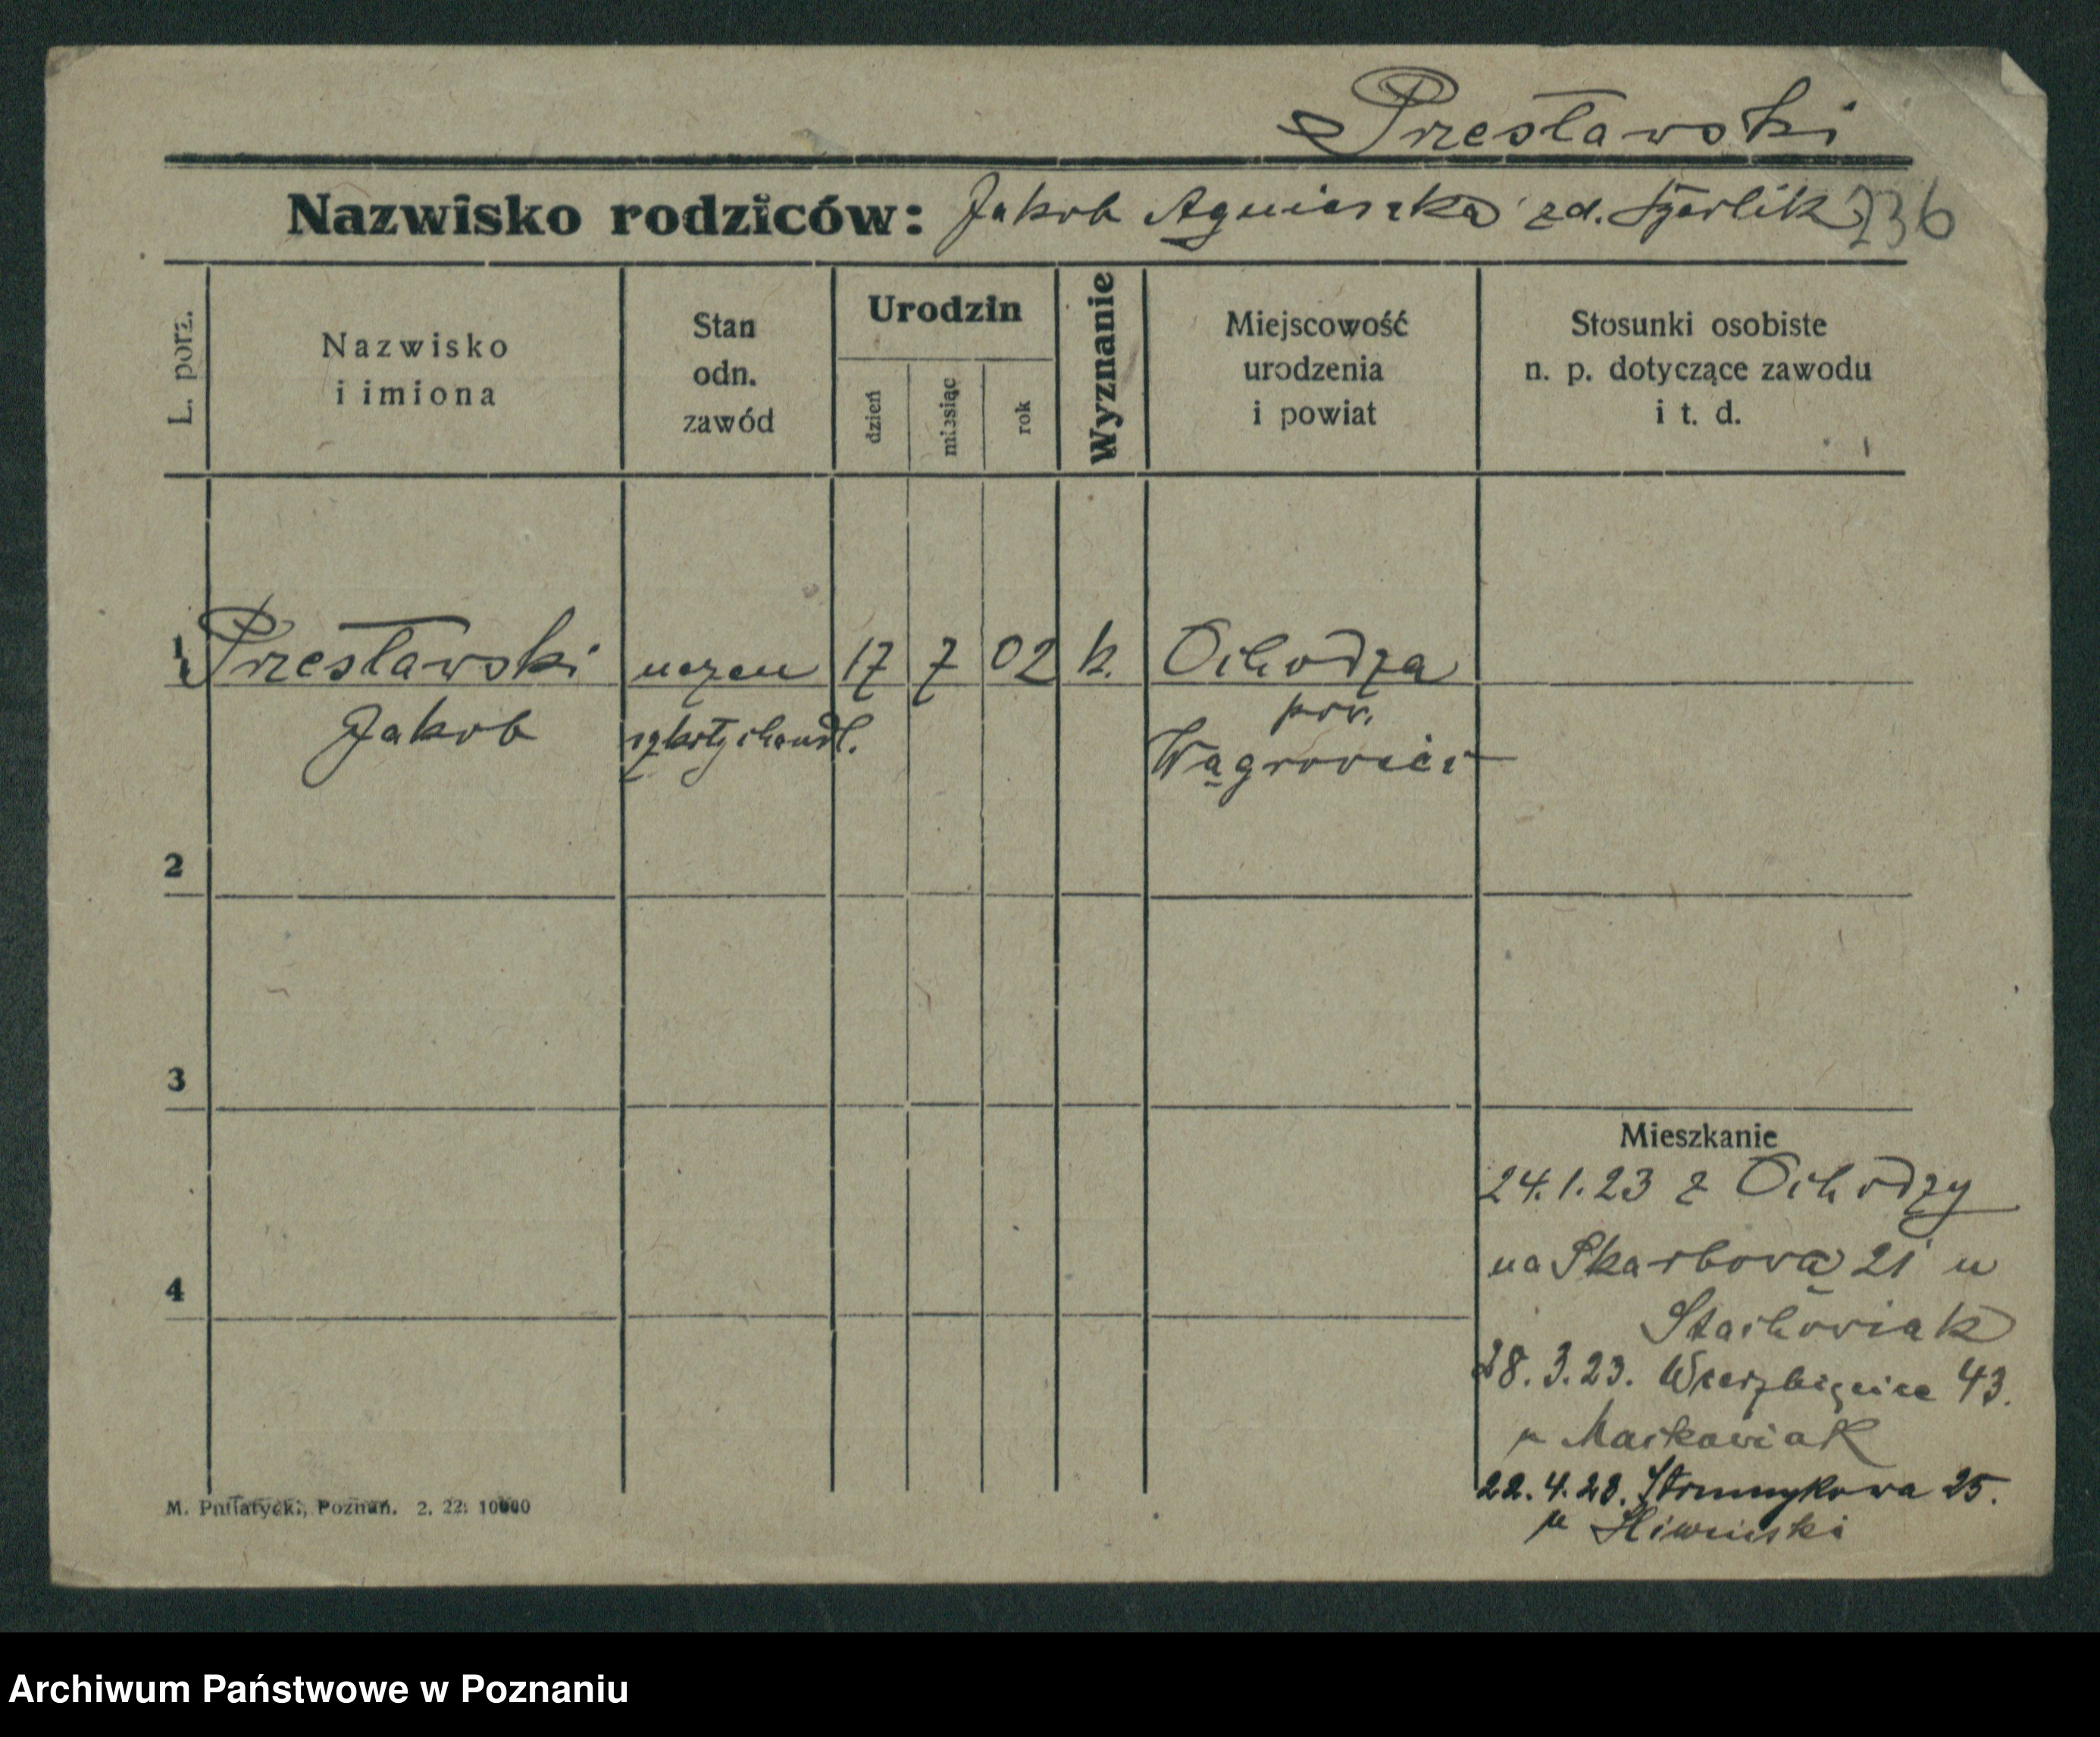 Presławski
Nazwisko rodziców: Jakob Agnieszka zd. 236
L. porz.
Nazwisko
i imiona
Stan
odn.
zawód
Urodzin
dzień
miesiąc
rok
Wyznanie
Miejscowość
urodzenia
i powiat
Stosunki osobiste
n. p. dotyczące zawodu
i t. d.
1 Presławski uczeń 17 7 02 k. Ochodza
Jakob szkoły handl. pow.
Wągrowiec
2
3
4
Mieszkanie
24.1.23 z Ochodzy
na Skarbową 21 u
Stachowiak
28.3.23. Wierzbięcice 43.
u Maćkowiak
22.4.23. Strumykowa 25.
u Śliwiński
M. Putiatycki, Poznań. 2. 22. 10000
Archiwum Państwowe w Poznaniu